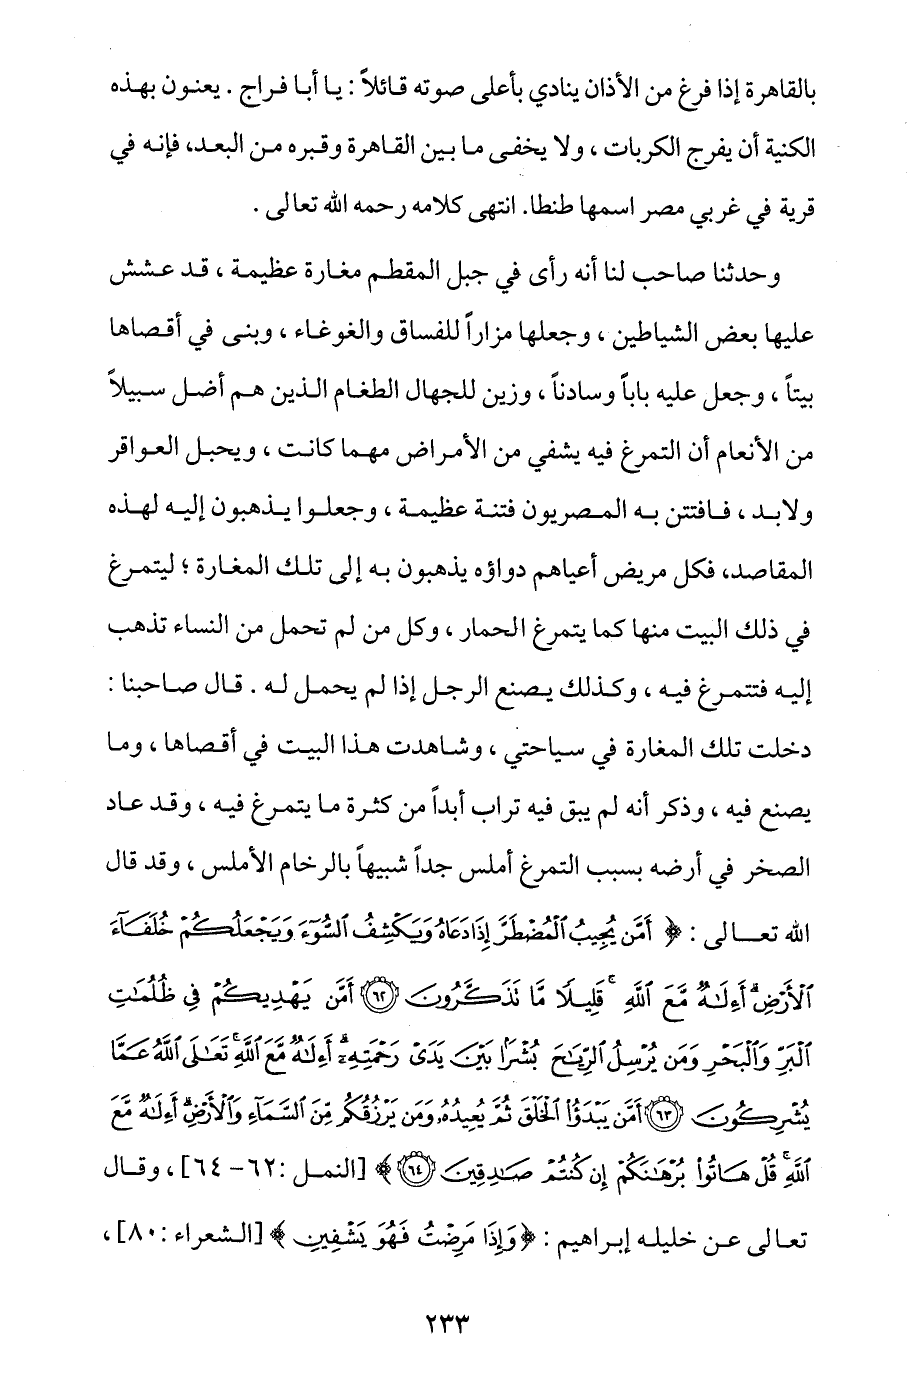 بالقاهرة إذا فرغ من الأذان ينادي بأعلى صوته قائلاً : يا أبا فراج . يعنون بهذه
الكنية أن يفرج الكربات ، ولا يخفى ما بين القاهرة وقبره من البعد، فإنه في
قرية في غربي مصر اسمها طنطا. انتهى كلامه رحمه الله تعالى .
وحدثنا صاحب لنا أنه رأى في جبل المقطم مغارة عظيمة ، قد عشش
عليها بعض الشياطين ، وجعلها مزاراً للفساق والغوغاء ، وبنى في أقصاها
بيتاً ، وجعل عليه باباً وسادناً ، وزين للجهال الطغام الذين هم أضل سبيلاً
من الأنعام أن التمرغ فيه يشفي من الأمراض مهما كانت ، ويحبل العواقر
ولابد ، فافتتن به المصريون فتنة عظيمة ، وجعلوا يذهبون إليه لهذه
المقاصد، فكل مريض أعياهم دواؤه يذهبون به إلى تلك المغارة ؛ ليتمرغ
في ذلك البيت منها كما يتمرغ الحمار ، وكل من لم تحمل من النساء تذهب
إليه فتتمرغ فيه ، وكذلك يصنع الرجل إذا لم يحمل له . قال صاحبنا :
دخلت تلك المغارة في سياحتي ، وشاهدت هذا البيت في أقصاها ، وما
يصنع فيه ، وذكر أنه لم يبق فيه تراب أبداً من كثرة ما يتمرغ فيه ، وقد عاد
الصخر في أرضه بسبب التمرغ أملس جداً شبيهاً بالرخام الأملس ، وقد قال
الله تعالى : ﴿ أَمَّن يُجِيبُ ٱلْمُضْطَرَّ إِذَا دَعَاهُ وَيَكْشِفُ ٱلسُّوٓءَ وَيَجْعَلُكُمْ خُلَفَآءَ
ٱلْأَرْضِ ۗ أَءِلَٰهٌ مَّعَ ٱللَّهِ ۚ قَلِيلًا مَّا تَذَكَّرُونَ ٦٢ أَمَّن يَهْدِيكُمْ فِى ظُلُمَٰتِ
ٱلْبَرِّ وَٱلْبَحْرِ وَمَن يُرْسِلُ ٱلرِّيَٰحَ بُشْرًۢا بَيْنَ يَدَىْ رَحْمَتِهِۦٓ ۗ أَءِلَٰهٌ مَّعَ ٱللَّهِ ۚ تَعَٰلَى ٱللَّهُ عَمَّا
يُشْرِكُونَ ٦٣ أَمَّن يَبْدَؤُا۟ ٱلْخَلْقَ ثُمَّ يُعِيدُهُۥ وَمَن يَرْزُقُكُم مِّنَ ٱلسَّمَآءِ وَٱلْأَرْضِ ۗ أَءِلَٰهٌ مَّعَ
ٱللَّهِ ۚ قُلْ هَاتُوا۟ بُرْهَٰنَكُمْ إِن كُنتُمْ صَٰدِقِينَ ٦٤ ﴾ [النمل :٦٢- ٦٤] ، وقال
تعالى عن خليله إبراهيم : ﴿ وَإِذَا مَرِضْتُ فَهُوَ يَشْفِينِ ﴾ [الشعراء :٨٠] ،
٢٣٣